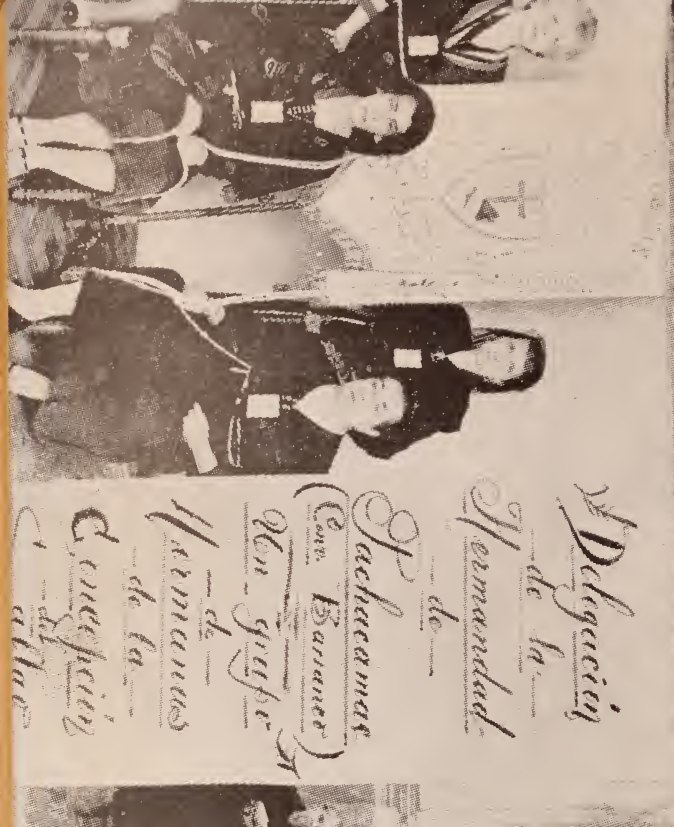 Delegación
de la
Hermandad
de
Pachacamac
(Conv. Barranco)
Un grupo
de
Hermanas
de la
Concepción